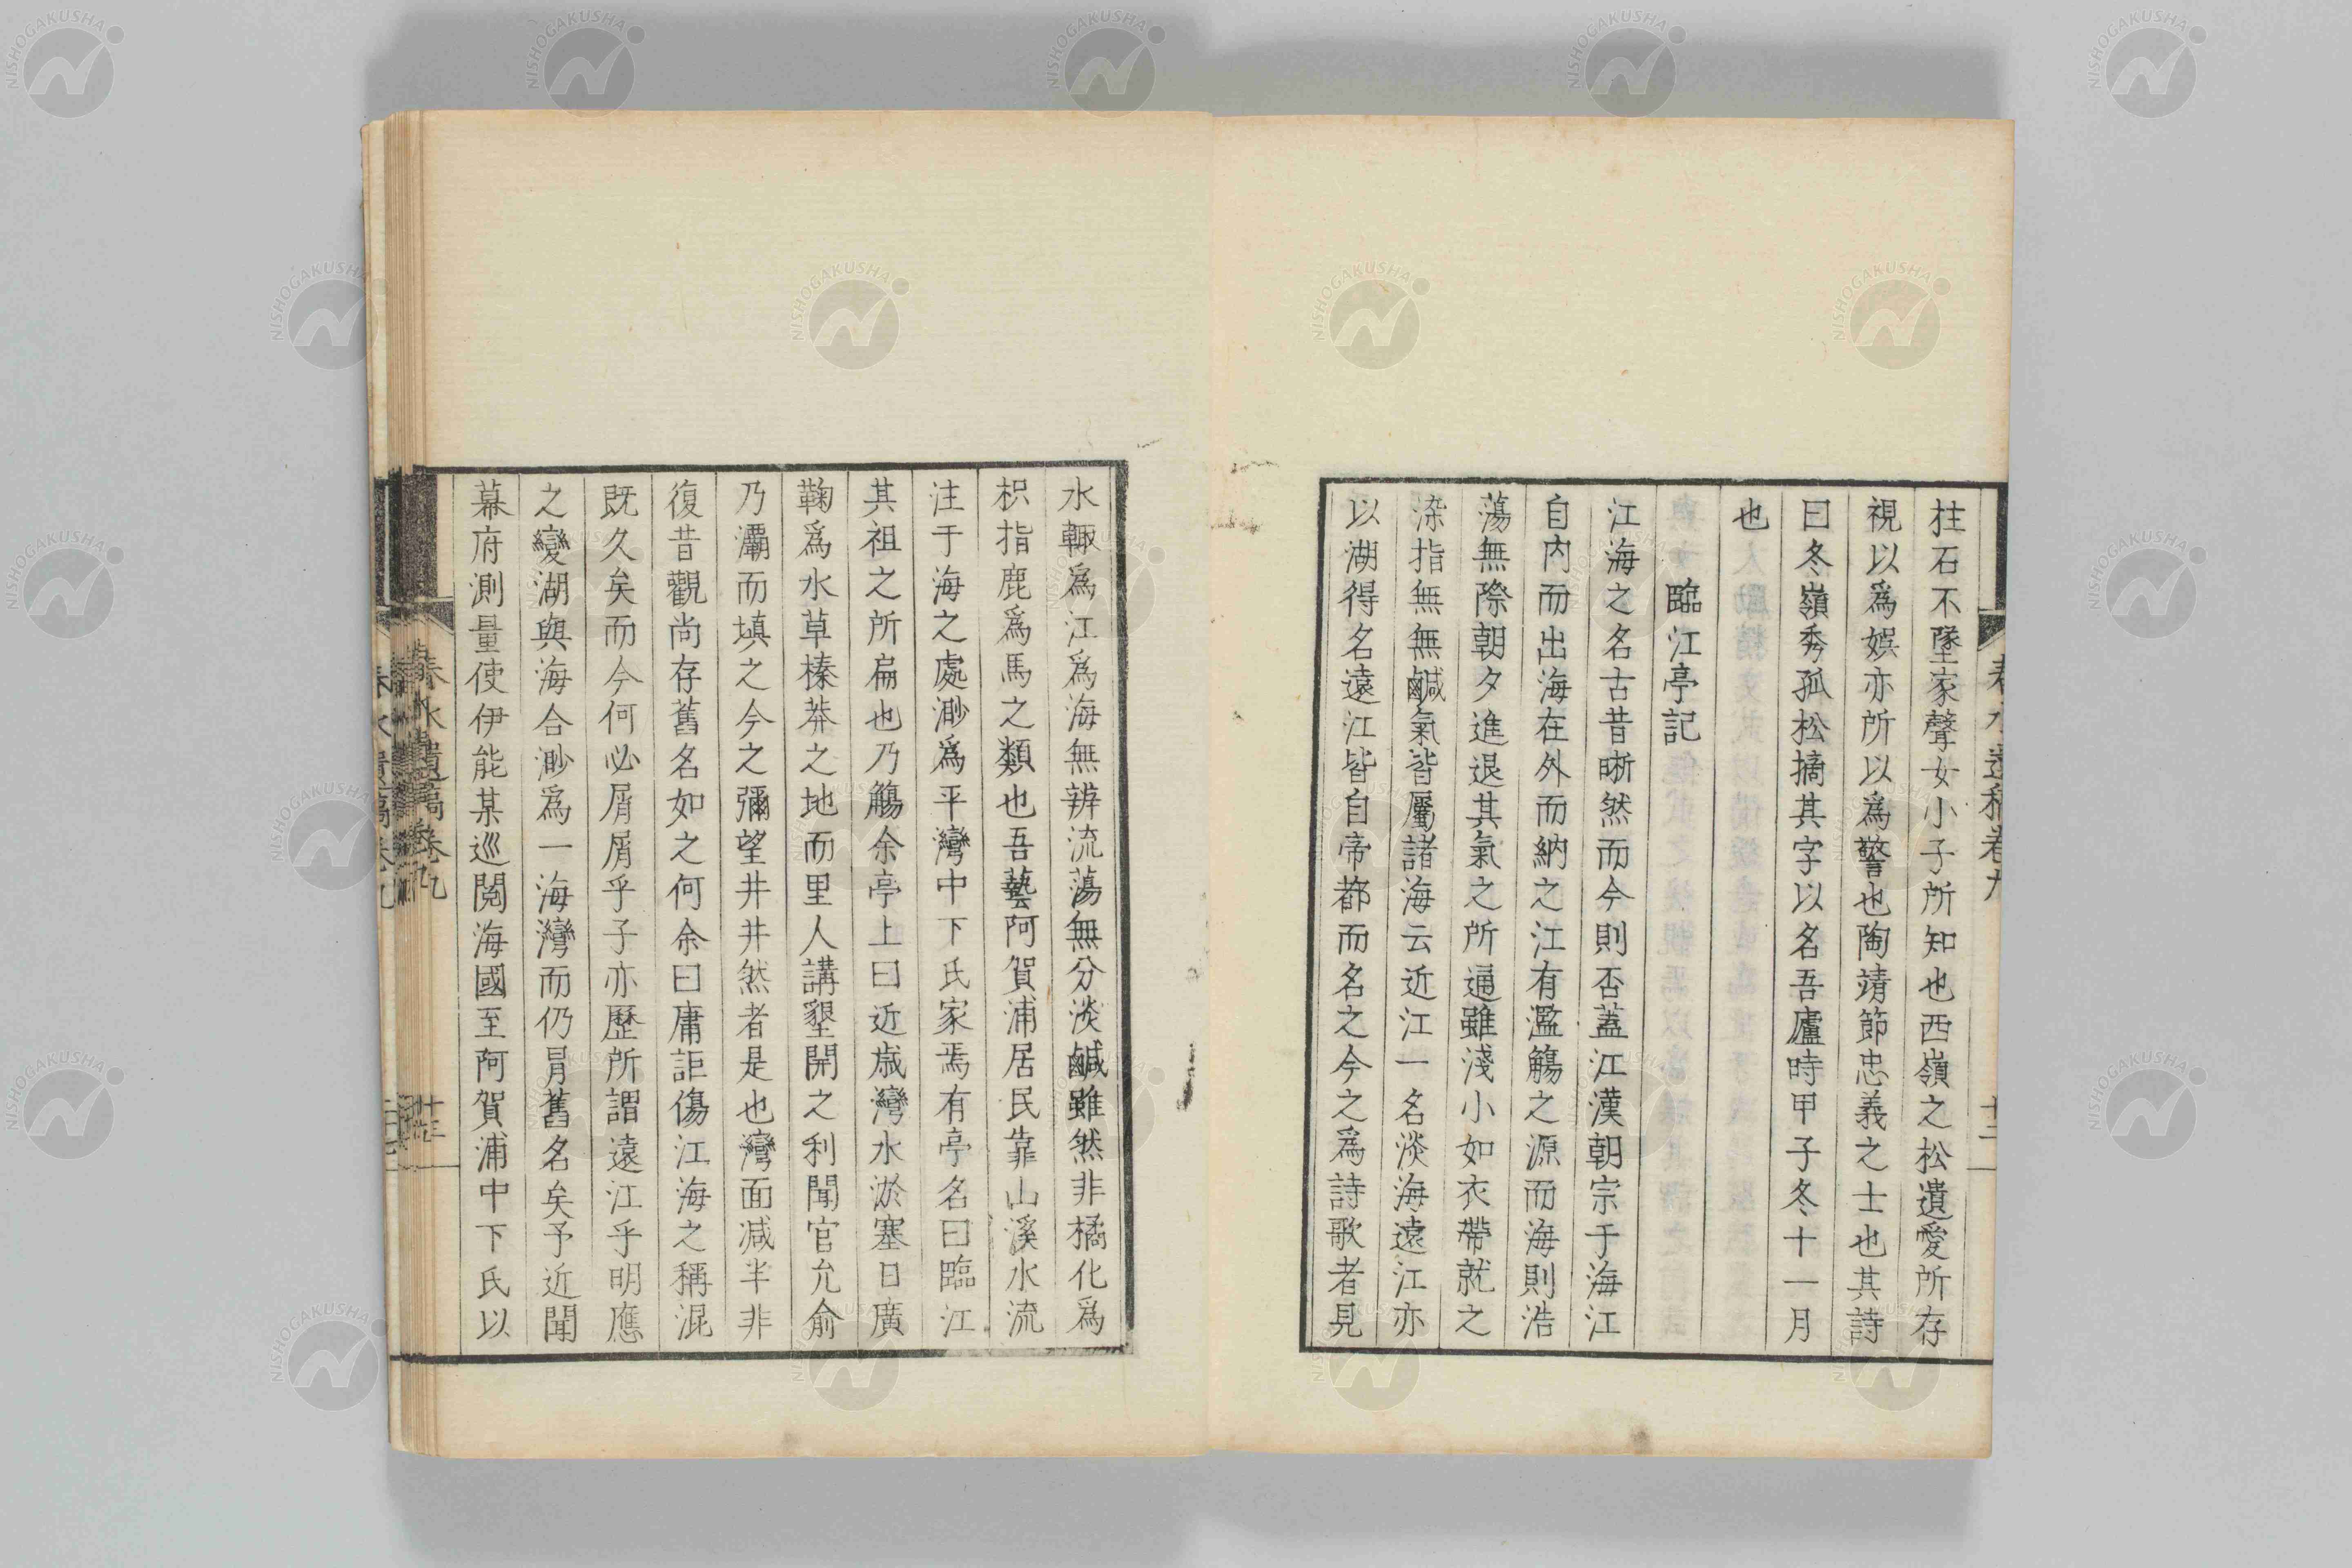 柱石不墜家聲女小子所知也西嶺之松遺愛所存
視以爲娯亦所以爲警也陶靖節忠義之士也其詩
曰冬嶺秀孤松摘其字以名吾廬時甲子冬十一月
也
臨江亭記
江海之名古昔晰然而今則否蓋江漢朝宗于海江
自内而出海在外而納之江有濫觴之源而海則浩
蕩無際朝夕進退其氣之所逼雖淺小如衣帶就之
染指無無鹹氣皆屬諸海云近江一名淡海遠江亦
以湖得名遠江皆自帝都而名之今之爲詩歌者見
水輙爲江爲海無辨流蕩無分淡鹹雖然非橘化爲
枳指鹿爲馬之類也吾藝阿賀浦居民靠山溪水流
注于海之處渺爲平灣中下氏家焉有亭名曰臨江
其祖之所扁也乃觴余亭上曰近歳灣水淤塞日廣
鞠爲水草榛莽之地而里人講墾開之利聞官允俞
乃灞而塡之今之彌望井井然者是也灣面减半非
復昔觀尚存舊名如之何余曰庸詎傷江海之稱混
既久矣而今何必屑屑乎子亦歷所謂遠江乎明應
之變湖與海合渺爲一海灣而仍冐舊名矣予近聞
幕府測量使伊能某巡閲海國至阿賀浦中下氏以
春水遺稿卷九
十二
春水遺稿卷九
十三
NISHOGAKUSHA